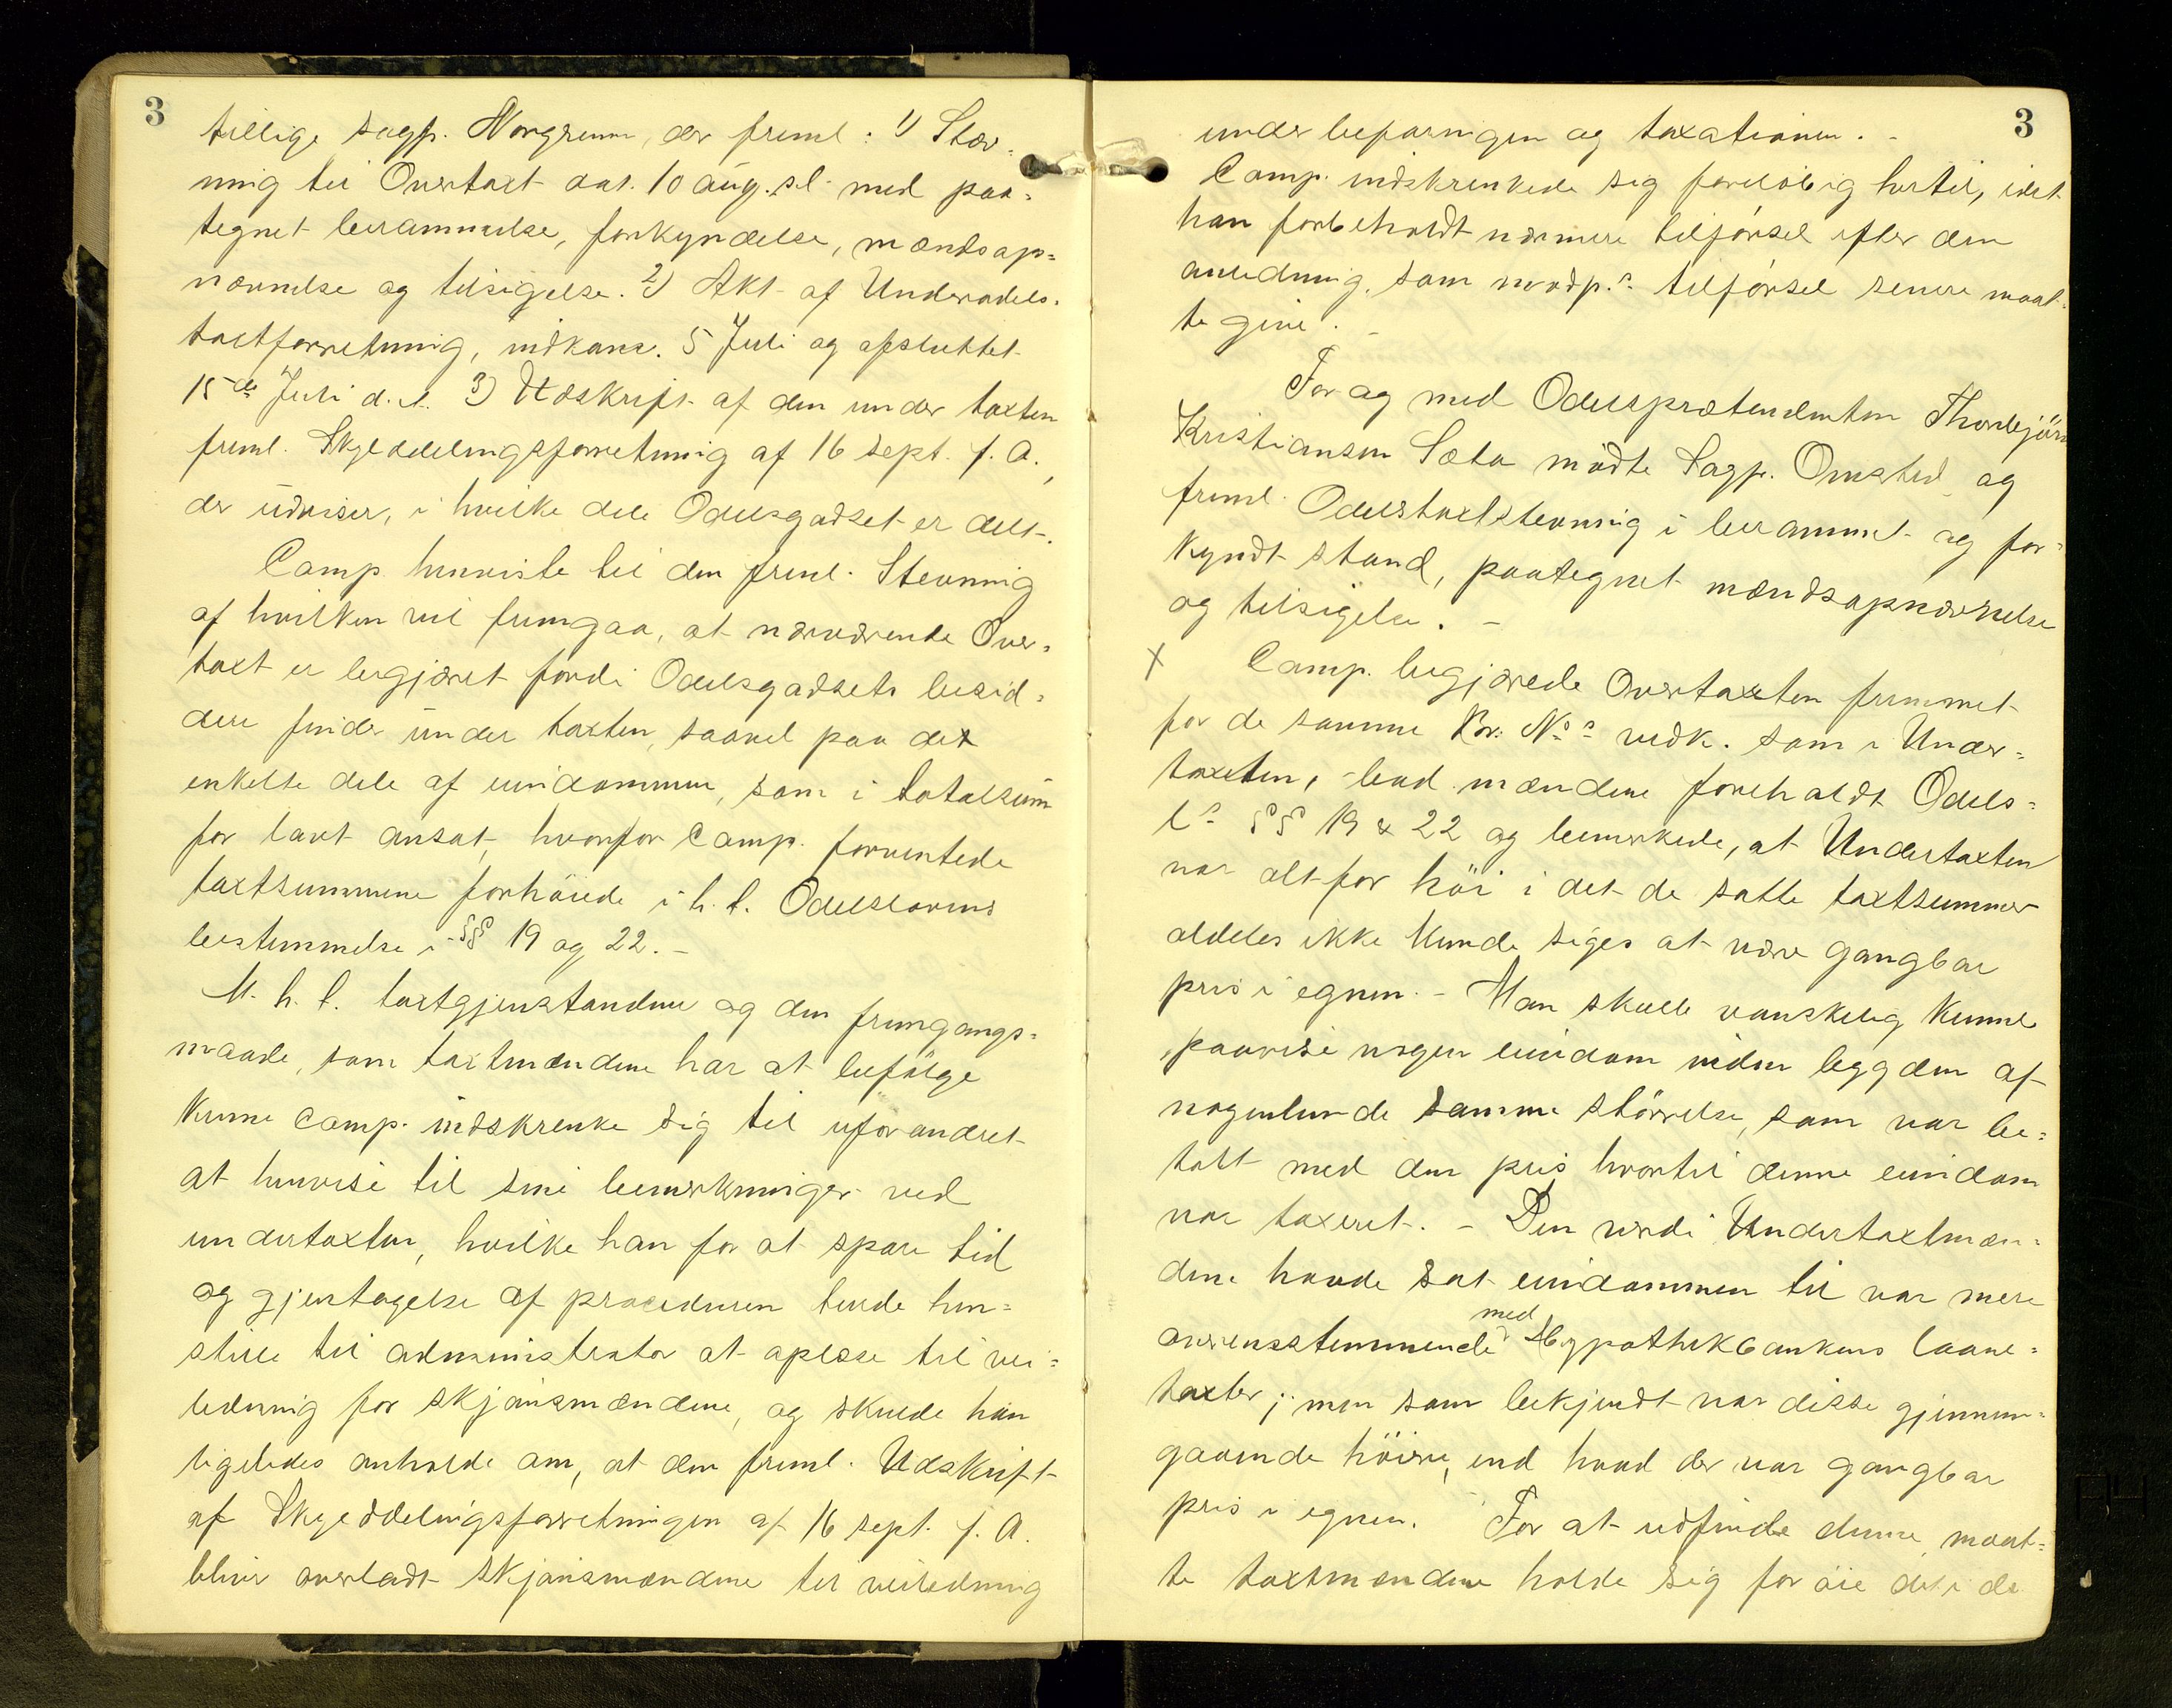 3
tillige sagf. Norgrenn, der freml: 1) Stæv-
ning til Overtaxt dat. 10 aug. s.l. med paa-
tegnet berammelse, forkyndelse, mændsop-
nævnelse og tilsigelse. 2) Akt af Underodels-
taxtforretning, indkom. 5 Juli og afsluttet
15de Juli d. A. 3) Udskrift af den under taxten
freml. Skylddelingsforretning af 16 Sept. f. A.,
der udviser, i hvilke dele Odelsgodset er delt.
Comp. henviste til den freml. Stevning
af hvilken vil fremgaa, at nærværende Over-
taxt er begjæret fordi Odelsgodsets besid-
dere finder under taxten, saavel paa det
enkelte dele af eiendommen, som i totalsum
for lavt ansat, hvorfor Comp. forventede
taxtsummene forhöiede i h. t. Odelslovens
bestemmelse i §§ 19 og 22. -
M. h. t. taxtgjenstandene og den fremgangs-
maade, som taxtmændene har at befölge
kunne Comp. indskrenke sig til uforandret
at henvise til sine bemerkninger ved
undertaxten, hvilke han for at spare tid
og gjentagelse af proceduren turde hen-
stille til administrator at oplæse til vei-
ledning for skjönsmændene, og skulde han
ligeledes anholde om, at den freml. Udskrift
af Skylddelingsforretningen af 16 sept. f. A.
bliver overladt skjönsmændene til veiledning
3
under befaringen og taxationen. -
Comp. indskrenkede sig foreløbig hertil, idet
han forbeholdt nærmere tilförsel efter den
anledning, som modp.s tilförsel senere maat-
te give. -
For og med Odelsprætendenten Thorbjörn
Kristiansen Sæta mödte Sagf. Omsted og
freml. Odelstaxtstevning i berammet og for-
kyndt stand, paategnet mændsopnævnelse
og tilsigelse. -
X Comp. begjærede Overtaxten fremmet
for de samme Br: No.s vedk. som i Under-
taxten, - bad mændene foreholdt Odels-
l.s §§ 19 & 22 og bemerkede, at Undertaxten
var alt for höi i det de satte taxtsummer
aldeles ikke kunde siges at være gangbar
pris i egnen. - Man skulle vanskelig kunne
paavise nogen eiendom inden bygden af
nogenlunde samme störrelse, som var be-
talt med den pris hvortil denne eiendom
var taxeret. - Den verdi Undertaxtmæn-
dene havde sat eiendommen til var mere
overensstemmende med Hypothekbankens laane-
taxter; men som bekjendt var disse gjennem-
gaaende höiere, end hvad der var gangbar
pris i egnen. For at udfinde denne, maat-
te taxtmændene holde sig for öie det, i de